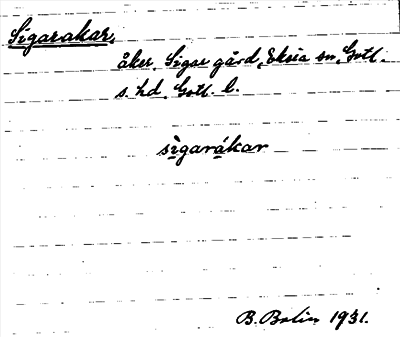 Sigarakar,
åker, Sigar gård, Eksta sn, Gotl.
s. hd, Gotl. l.
sìgarákar
B. Bolin 1931.